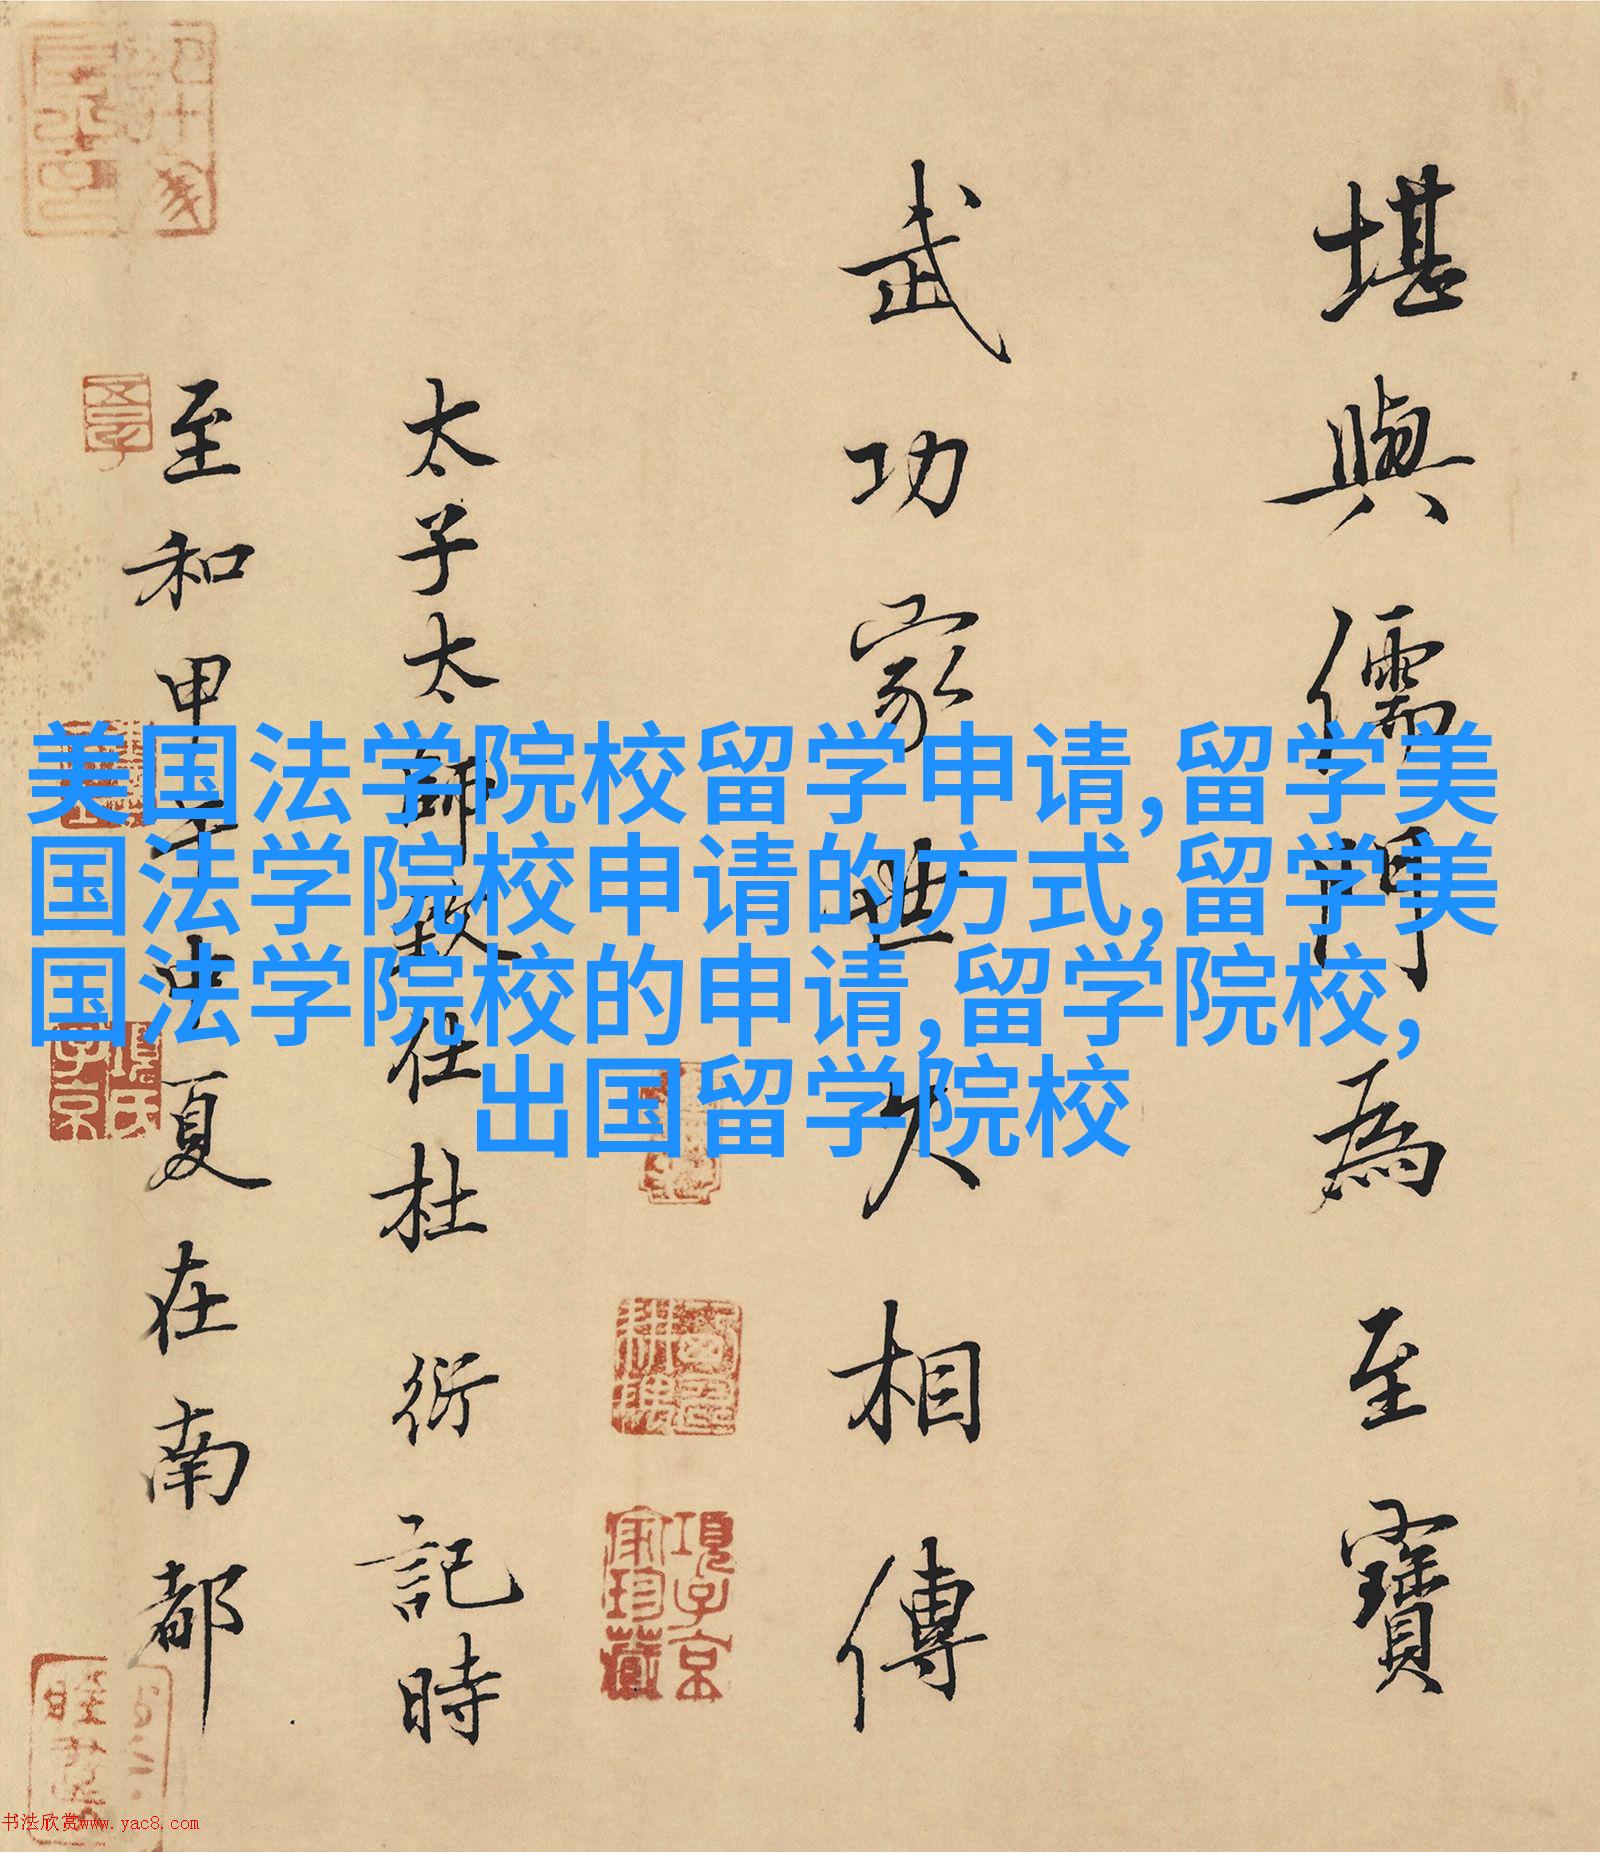 堪與儒門為至寶
武功家世久相傳
太子太師致仕杜衍記時
至和甲午中夏在南都
美国法学院校留学申请,留学美
国法学院校申请的方式,留学美
国法学院校的申请,留学院校,
出国留学院校
项子京
家珍藏
项氏
子京
书法欣赏www.yac8.com